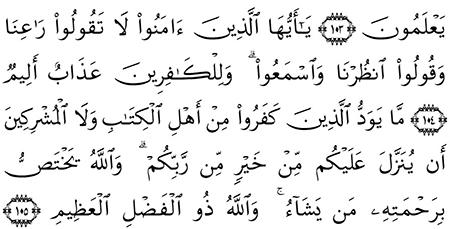 يَعْلَمُونَ ١٠٣ يَـٰٓأَيُّهَا ٱلَّذِينَ ءَامَنُوا۟ لَا تَقُولُوا۟ رَٰعِنَا
وَقُولُوا۟ ٱنظُرْنَا وَٱسْمَعُوا۟ ۗ وَلِلْكَـٰفِرِينَ عَذَابٌ أَلِيمٌ
١٠٤ مَّا يَوَدُّ ٱلَّذِينَ كَفَرُوا۟ مِنْ أَهْلِ ٱلْكِتَـٰبِ وَلَا ٱلْمُشْرِكِينَ
أَن يُنَزَّلَ عَلَيْكُم مِّنْ خَيْرٍ مِّن رَّبِّكُمْ ۗ وَٱللَّهُ يَخْتَصُّ
بِرَحْمَتِهِۦ مَن يَشَآءُ ۚ وَٱللَّهُ ذُو ٱلْفَضْلِ ٱلْعَظِيمِ ١٠٥